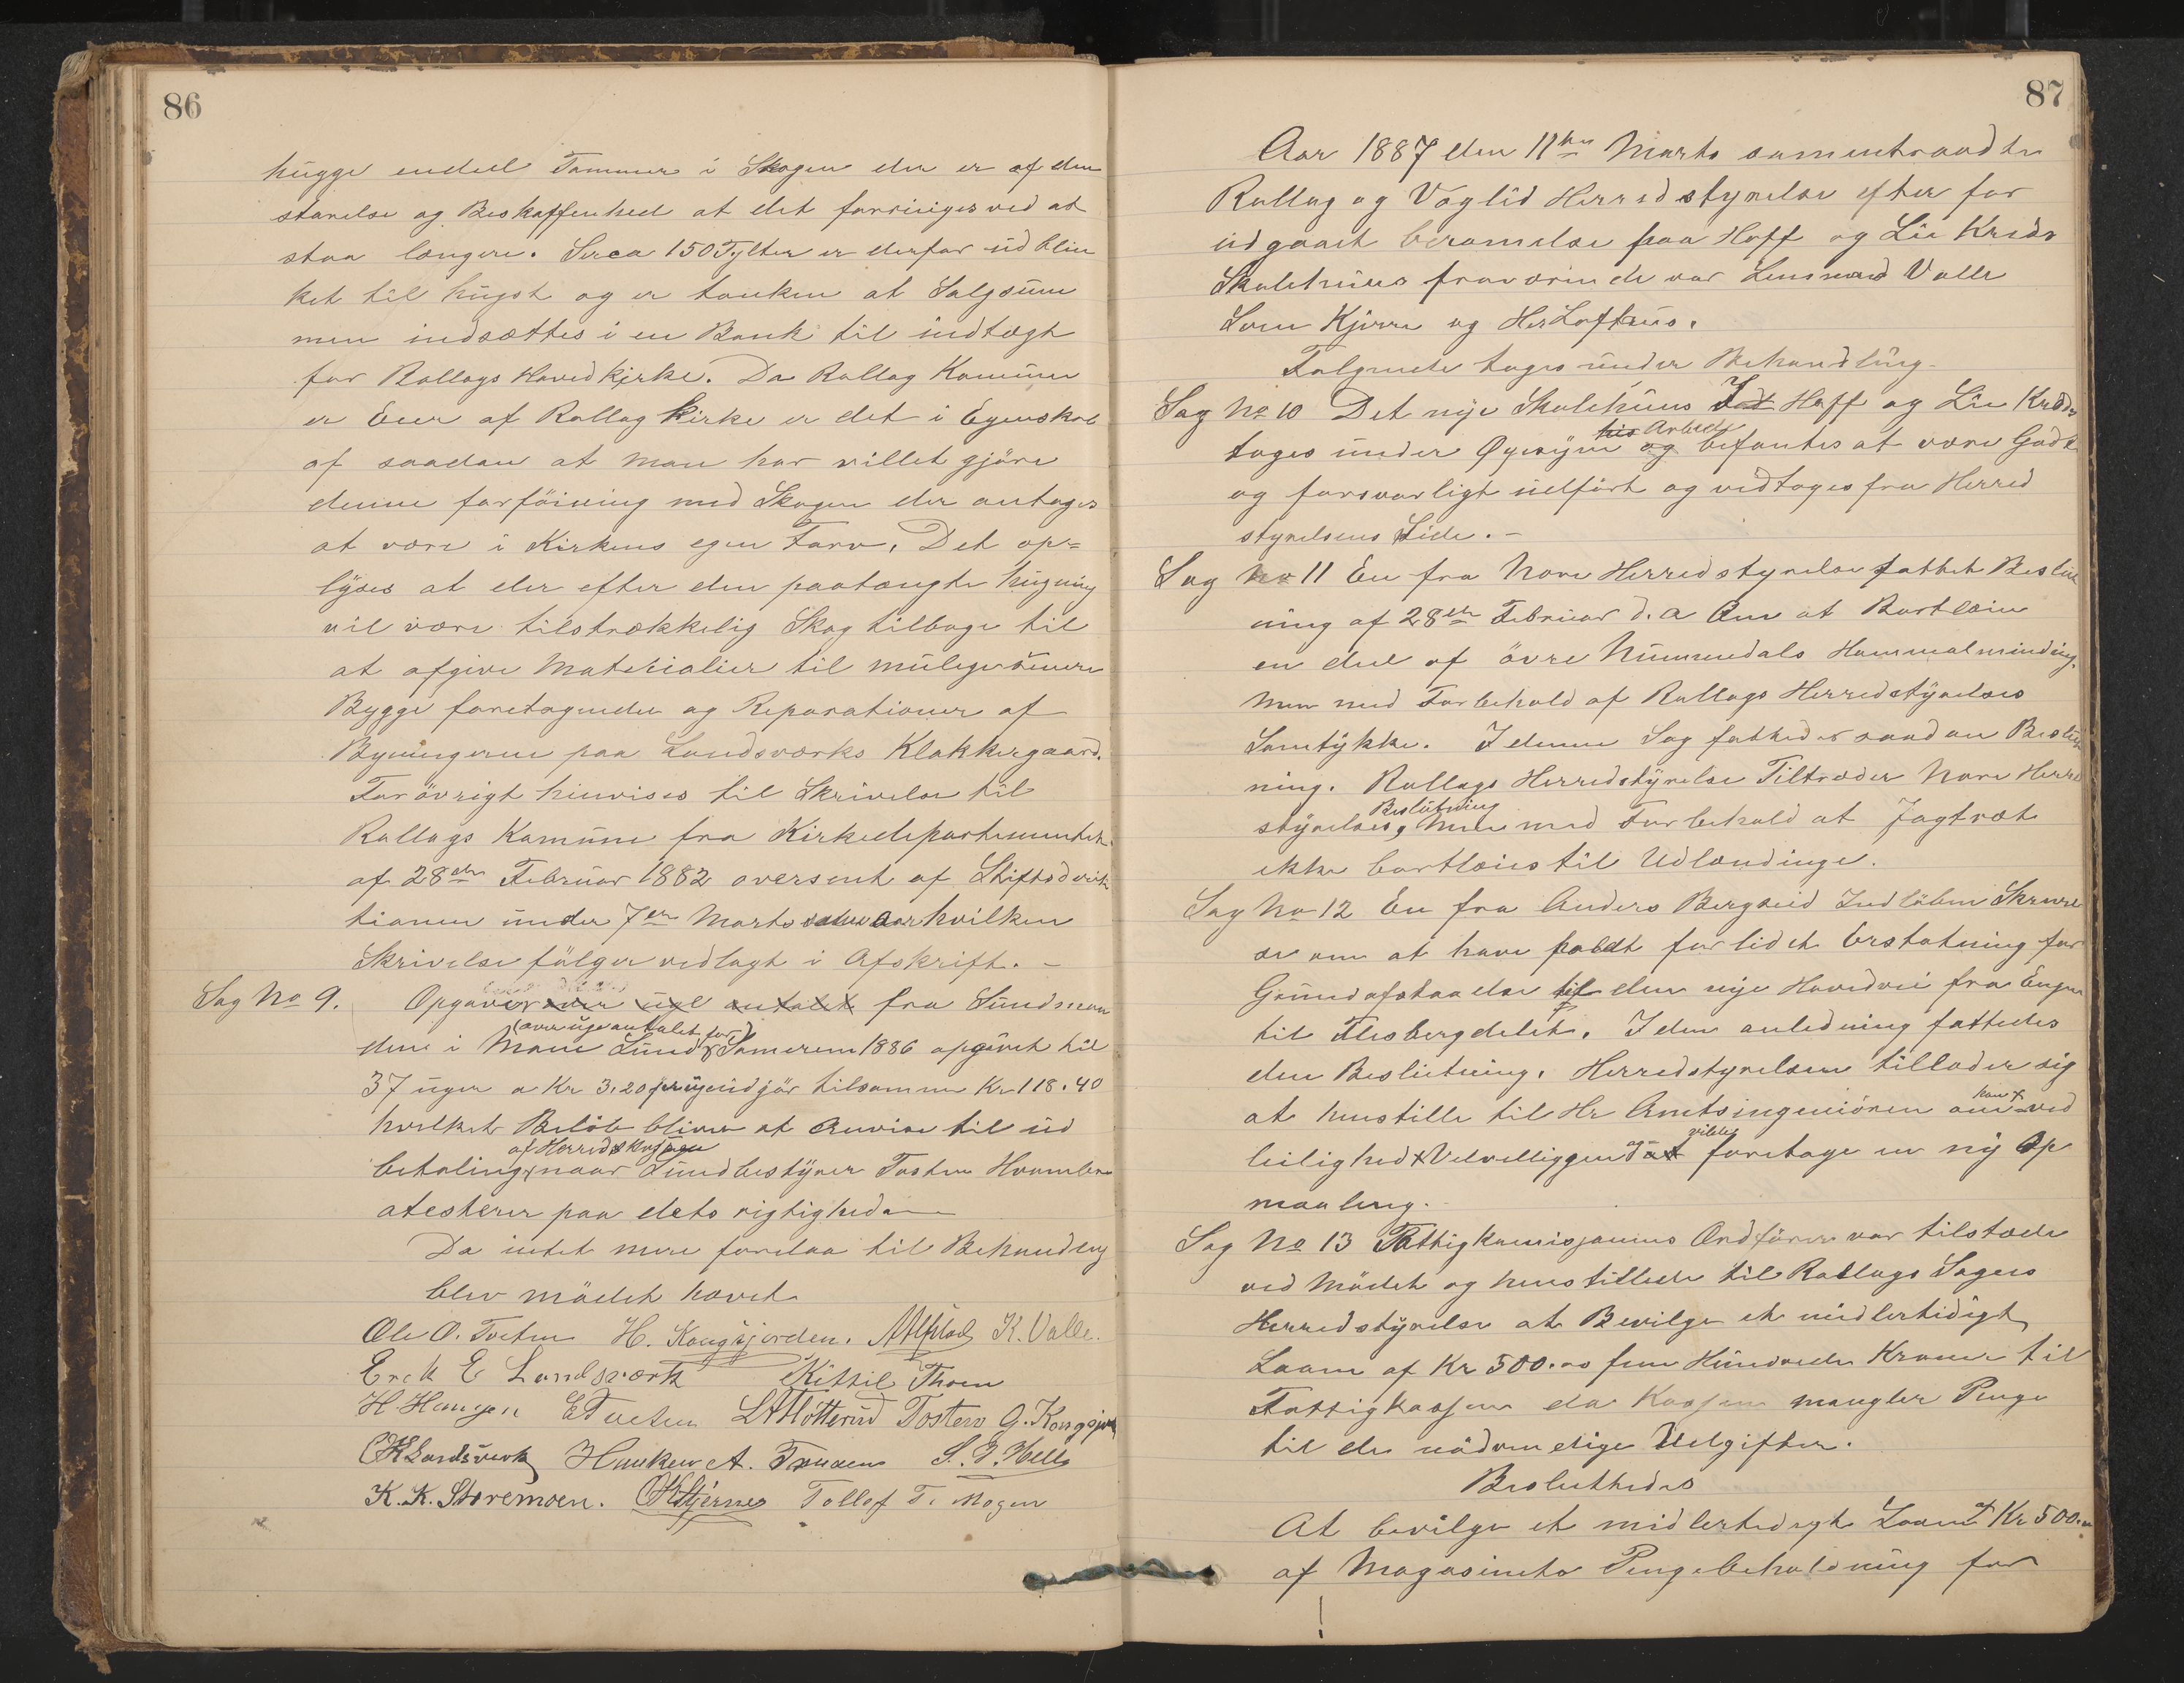 86
hugge endeel Tømmer i Skogen der er af den
størrelse og Beskaffenhed at det forringes ved at
staa længere. Serca 150 Tylter er derfor udblin
ket til hugst og er tanken at Salgsum
men indsættes i en Bank til indtægt
for Rollags Hovedkjerke. Da Rollag Kommune
er Eier af Rollag Kirke er det i Egenskab
af saadan at man har villet gjöre
denne forföining med Skogen der antages
at være i Kirkens egen Tarv. Det op=
lyses at der efter den paatængte hugning
vil være tilstrækkelig Skog tilbage til
at afgive Materialier til mulige senere
Bygge foretagender og Reparationer af
Bygningerne paa Landsværks Klokkergaard.
For övrigt henvises til Skrivelse til
Rollags Kamune fra Kirkedepartementet
af 28de Februar 1882 oversent af Stiftsdirek
tionen under 7de Marts samme Aar hvilken
Skrivelse fölger vedlagt i Afskrift. –
Sag No 9. Opgaver over uge antalet fra Sindssvan
(over uge antalet for)
dene i Mone Lund Someren 1886 opgivet til
37 uger a Kr 3,20 pr uge udgjör tilsammen Kr 118.40
hvilket Belöb bliver at Anvise til ud
af Herredskassen
betaling naar Lundbestyrer Tosten
atesterer paa dets rigtighed
Da intet mere forelaa til Behandling
blev mödet hævet
Ole O. Tveten H. Kongsjorden. K. Valle.
Erik E Landsverk Kittil Thoen
H Haugen E Tveten Tosten G. Kongsjord
Landsverk Haaken A. Fruden S. G. Helle
K. K. Storemoen. Tollef T. Mogen
87
Aar 1887 den 11te Marts sammentraadte
Rollag og Væglid Herredstyrelse efter for
udgaaet berammelse paa Hoff og Lie Kreds
Skolehuus fraværende var Lensmand Valle
Som Kjerre og Her Lofthus.
Følgende toges under Behandling.
Sag No 10 Det nye Skolehuus I Hoff og Lie Kreds
Arbeide
toges under Øyesyn og befantes at være Godt
og forsvarligt udfört og vedtoges fra Herred
styrelsens Side. –
Sag No 11 En fra Nore Herredstyrelse fattet Beslut
ning af 28de Februar d. a Om at Bortleie
en deel af övre Nummedals Hammalminding
men med Forbehold af Rollags Herredstyrelses
Samtykke. I denne Sag fattedes saadan Beslut
ning. Rollags Herredstyrelse Tiltræder Nore Herred
Beslutning
styrelses, Men med Forbehold at Jagtret
ikke bortleies til Udlændinge.
Sag No 12 En fra Anders Bergseid Indlöben Skrivel
se om at have faaet for lidet Erstatning for
Grundafstaaelse til den nye Hovedvei fra
til Flesbergdelet. I den anledning fattedes
den Beslutning. Herredstyrelsen tillader sig
at henstille til Hr Amtsingeniören om
han ved
og vilde
leilighed Velvilliggend at foretage en ny Op
maaling.
Sag No 13 Fattigkomisjonens Ordförer var tilstæde
ved Mödet og henstillede til Rollags Sogns
Herredstyrelse at Bevilge et midlertidigt
Laan af Kr 500.00 fem Hundrede Kroner til
Fattigkassen da Kassen mangler Penge
til de nödvendige Udgifter.
Besluttedes
At bevilge et midlertidigt Laan af Kr 500.00
af Magasinets Pengebeholdning for